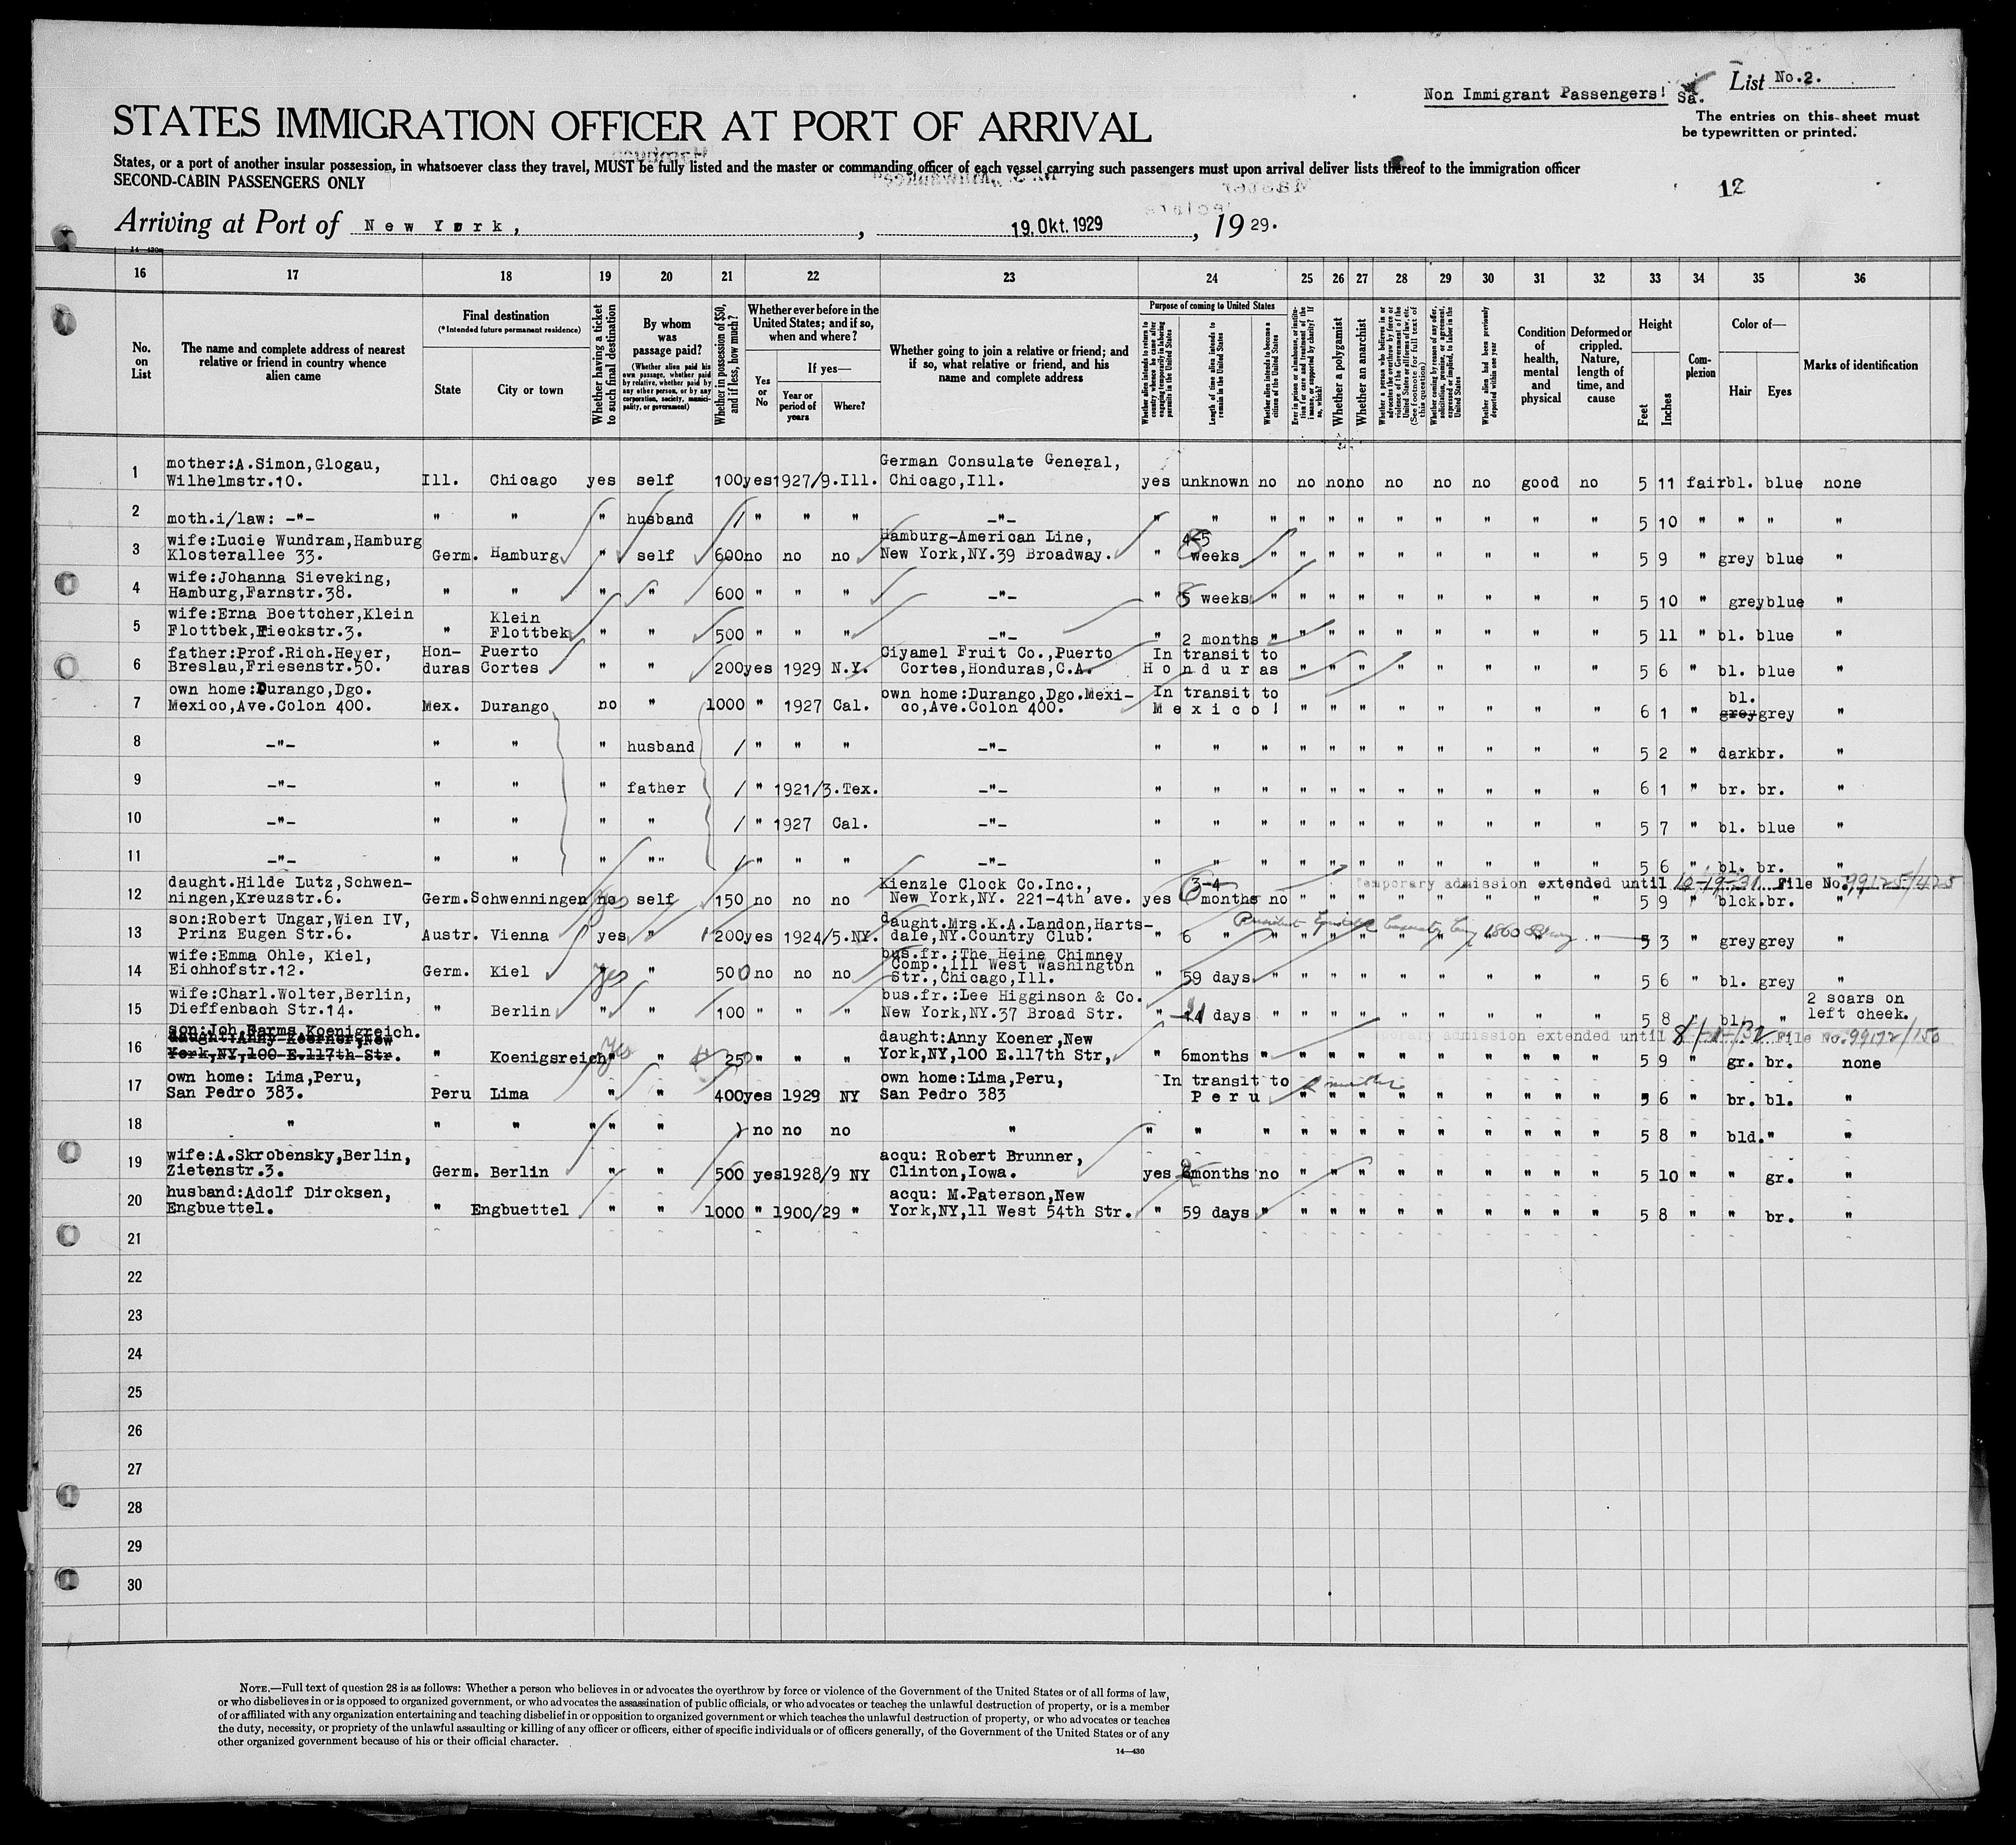 Non Immigrant Passengers! Sa.
List No.2.
The entries on this sheet must
be typewritten or printed.
STATES IMMIGRATION OFFICER AT PORT OF ARRIVAL
States, or a port of another insular possession, in whatsoever class they travel, MUST be fully listed and the master or commanding officer of each vessel carrying such passengers must upon arrival deliver lists thereof to the immigration officer
SECOND-CABIN PASSENGERS ONLY
12
Arriving at Port of New York, , 19. Okt. 1929 , 19 29.
14-430
16 17 18 19 20 21 22 23 24 25 26 27 28 29 30 31 32 33 34 35 36
No. on List
The name and complete address of nearest relative or friend in country whence alien came
Final destination
(*Intended future permanent residence)
State City or town
Whether having a ticket to such final destination
By whom was passage paid?
(Whether alien paid his own passage, whether paid by relative, whether paid by any other person, or by any corporation, society, municipality, or government)
Whether in possession of $50, and if less, how much?
Whether ever before in the United States; and if so, when and where?
Yes or No
If yes—
Year or period of years Where?
Whether going to join a relative or friend; and if so, what relative or friend, and his name and complete address
Purpose of coming to United States
Whether alien intends to return to country whence he came after engaging temporarily in laboring pursuits in the United States
Length of time alien intends to remain in the United States
Whether alien intends to become a citizen of the United States
Ever in prison or almshouse, or institution for care and treatment of the insane, or supported by charity? If so, which?
Whether a polygamist
Whether an anarchist
Whether a person who believes in or advocates the overthrow by force or violence of the Government of the United States or all forms of law, etc. (See footnote for full text of this question)
Whether coming by reason of any offer, solicitation, promise, or agreement, expressed or implied, to labor in the United States
Whether alien had been previously deported within one year
Condition of health, mental and physical
Deformed or crippled. Nature, length of time, and cause
Height
Feet Inches
Complexion
Color of—
Hair Eyes
Marks of identification
1 mother:A.Simon,Glogau, German Consulate General,
Wilhelmstr.10. Ill. Chicago yes self 100 yes 1927/9.Ill. Chicago,Ill. yes unknown no no no no no no no good no 5 11 fair bl. blue none
2 moth.i/law: -"- " " " husband / " " " -"- " " " " " " " " " " " 5 10 " " " "
3 wife:Lucie Wundram,Hamburg Hamburg-American Line, 4-5
Klosterallee 33. Germ. Hamburg " self 600 no no no New York,NY.39 Broadway. " 8 weeks " " " " " " " " " 5 9 " grey blue "
4 wife:Johanna Sieveking,
Hamburg,Farnstr.38. " " " " 600 " " " -"- " 8 weeks " " " " " " " " " 5 10 " grey blue "
5 wife:Erna Boettcher,Klein Klein
Flottbek,Fieckstr.3. " Flottbek " " 500 " " " -"- " 2 months " " " " " " " " " 5 11 " bl. blue "
6 father:Prof.Rich.Heyer, Hon- Puerto Ciyamel Fruit Co.,Puerto In transit to
Breslau,Friesenstr.50. duras Cortes " " 200 yes 1929 N.Y. Cortes,Honduras,C.A. Honduras " " " " " " " " 5 6 " bl. blue "
7 own home:Durango,Dgo. own home:Durango,Dgo.Mexi- In transit to bl.
Mexico,Ave.Colon 400. Mex. Durango no " 1000 " 1927 Cal. co,Ave.Colon 400. Mexico! " " " " " " " " 6 1 " grey grey "
8 -"- " " " husband / " " " -"- " " " " " " " " " " " 5 2 " dark br. "
9 -"- " " " father / " 1921/3.Tex. -"- " " " " " " " " " " " 6 1 " br. br. "
10 -"- " " " " / " 1927 Cal. -"- " " " " " " " " " " " 5 7 " bl. blue "
11 -"- " " " "" / " " " -"- " " " " " " " " " " " 5 6 " bl. br. "
12 daught.Hilde Lutz,Schwen- Kienzle Clock Co.Inc., 3-4 Temporary admission extended until 10-19-31 File No. 99125/425
ningen,Kreuzstr.6. Germ. Schwenningen no yes self 150 no no no New York,NY. 221-4th ave. yes 6 months no " " " " " " " " 5 9 " blck. br. "
13 son:Robert Ungar,Wien IV, daught.Mrs.K.A.Landon,Harts-
Prinz Eugen Str.6. Austr. Vienna yes " 200 yes 1924/5.NY. dale,NY.Country Club. " 6 " " " " " " " " " 5 3 " grey grey "
14 wife:Emma Ohle, Kiel, bus.fr.:The Heine Chimney
Eichhofstr.12. Germ. Kiel yes " 500 no no no Comp.,111 West Washington
Str.,Chicago,Ill. " 59 days " " " " " " " " " 5 6 " bl. grey "
15 wife:Charl.Wolter,Berlin, bus.fr.:Lee Higginson & Co. 2 scars on
Dieffenbach Str.14. " Berlin " " 100 " " " New York,NY.37 Broad Str. " days " " " " " " " " " 5 8 " bl. " left cheek.
son:Joh.Harms,Koenigreich. Temporary admission extended until File No. 99172/150
16 daught:Anny Koerner,New daughter:Anny Koener,New
York,NY,100 E.117th Str. " Koenigsreich " yes " 350 " " " York,NY,100 E.117th Str, " 6months " " " " " " " " " 5 9 " gr. br. none
17 own home: Lima,Peru, own home:Lima,Peru, In transit to
San Pedro 383. Peru Lima " " 400 yes 1929 NY San Pedro 383 Peru " " " " " " " " 5 6 " br. bl. "
18 " " " " " " no no no " " " " " " " " " " " " 5 8 " bld. " "
19 wife:A.Skrobensky,Berlin, acqu: Robert Brunner,
Zietenstr.3. Germ. Berlin " " 500 yes 1928/9 NY Clinton,Iowa. yes months no " " " " " " " " 5 10 " " gr. "
20 husband:Adolf Dircksen, acqu: M.Paterson,New
Engbuettel. " Engbuettel " " 1000 " 1900/29 " York,NY,11 West 54th Str. " 59 days " " " " " " " " " 5 8 " " br. "
21
22
23
24
25
26
27
28
29
30
NOTE.—Full text of question 28 is as follows: Whether a person who believes in or advocates the overthrow by force or violence of the Government of the United States or of all forms of law,
or who disbelieves in or is opposed to organized government, or who advocates the assassination of public officials, or who advocates or teaches the unlawful destruction of property, or is a member
of or affiliated with any organization entertaining and teaching disbelief in or opposition to organized government or which teaches the unlawful destruction of property, or who advocates or teaches
the duty, necessity, or propriety of the unlawful assaulting or killing of any officer or officers, either of specific individuals or of officers generally, of the Government of the United States or of any
other organized government because of his or their official character.
14—430